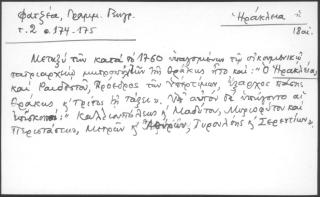 Φατζέα, Γραμμ. Βυζρ. Ἡράκλεια
τ. 2 σ. 174-175 18 αἰ.
Μεταξύ τῶν κατά τό 1760 ὑπαγομένων τῷ οἰκουμενικῷ
πατριαρχικῷ μητροπολιτῶν τῆς Θράκης ἦτο καί: "Ὁ Ἡρακλείας
καί Ραιδεστοῦ, Πρόεδρος τῶν Ὑπερτίμων, ἔξαρχος πάσης
Θράκης κ' τρίτος τῇ τάξει". Ὑπ' αὐτόν δέ ὑπάγοντο αἱ
ἐπισκοπαί: Καλλιουπόλεως κ' Μαδύτου, Μυριοφύτου καί
Περιστάσεως, Μετρῶν κ' Ἀθύρων, Τυρολόης κ' Σερεντίου